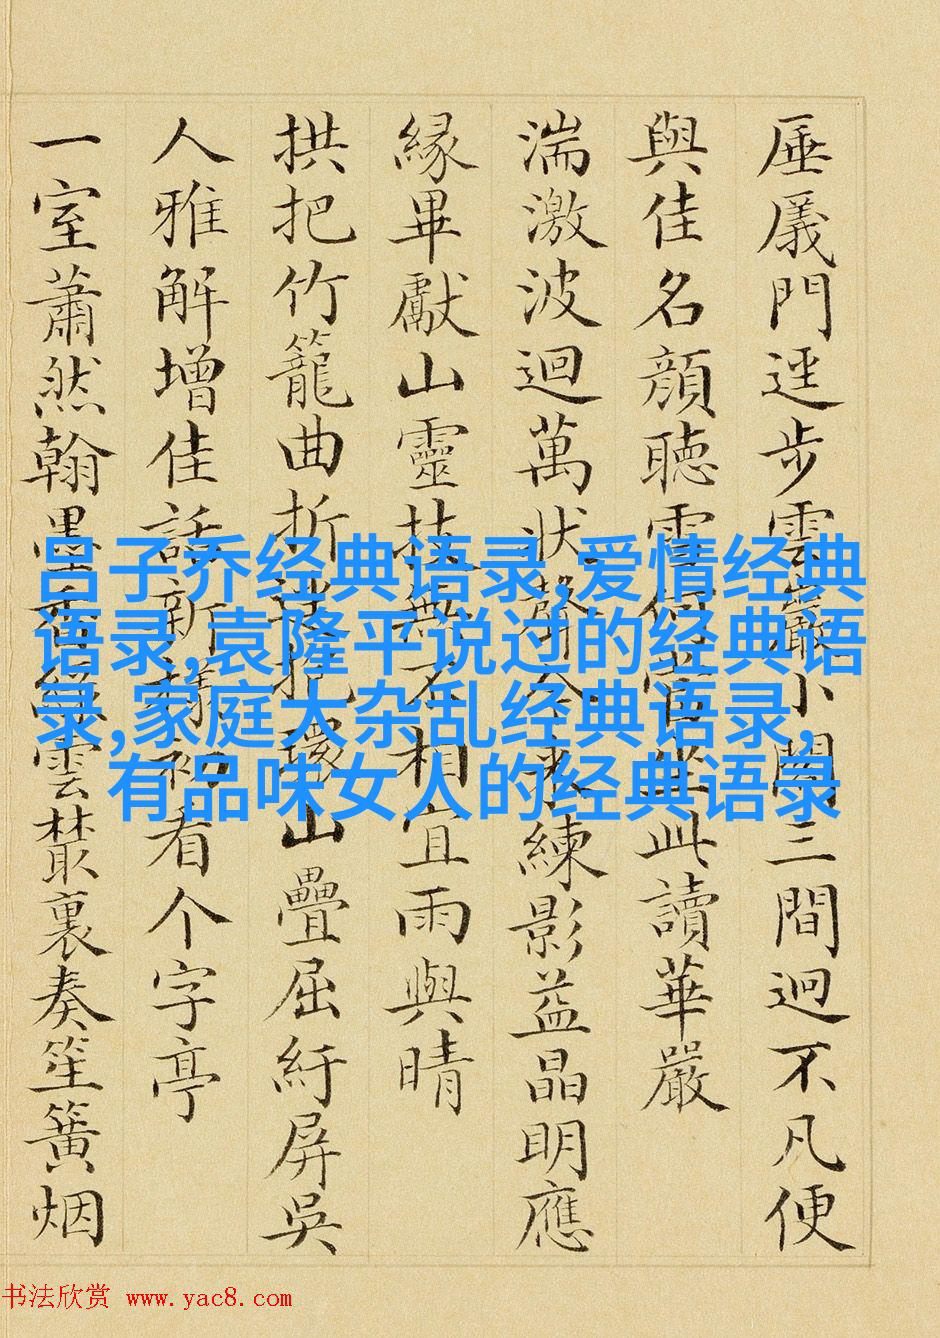 厜㕒門逕步雲巖小閣三間迥不凡便
與佳名顔聽雪何當坐此讀華嚴
湍激波迴萬狀聲練影益晶明應
緣畢獻山靈技無不相宜雨與晴
拱把竹籠曲折山疊屈紆屏吳
人雅解增佳話新樣初看个字亭
一室蕭然翰墨香雲藂裏奏笙簧烟
吕子乔经典语录,爱情经典
语录,袁隆平说过的经典语
录,家庭大杂乱经典语录,
有品味女人的经典语录
书法欣赏 www.yac8.com